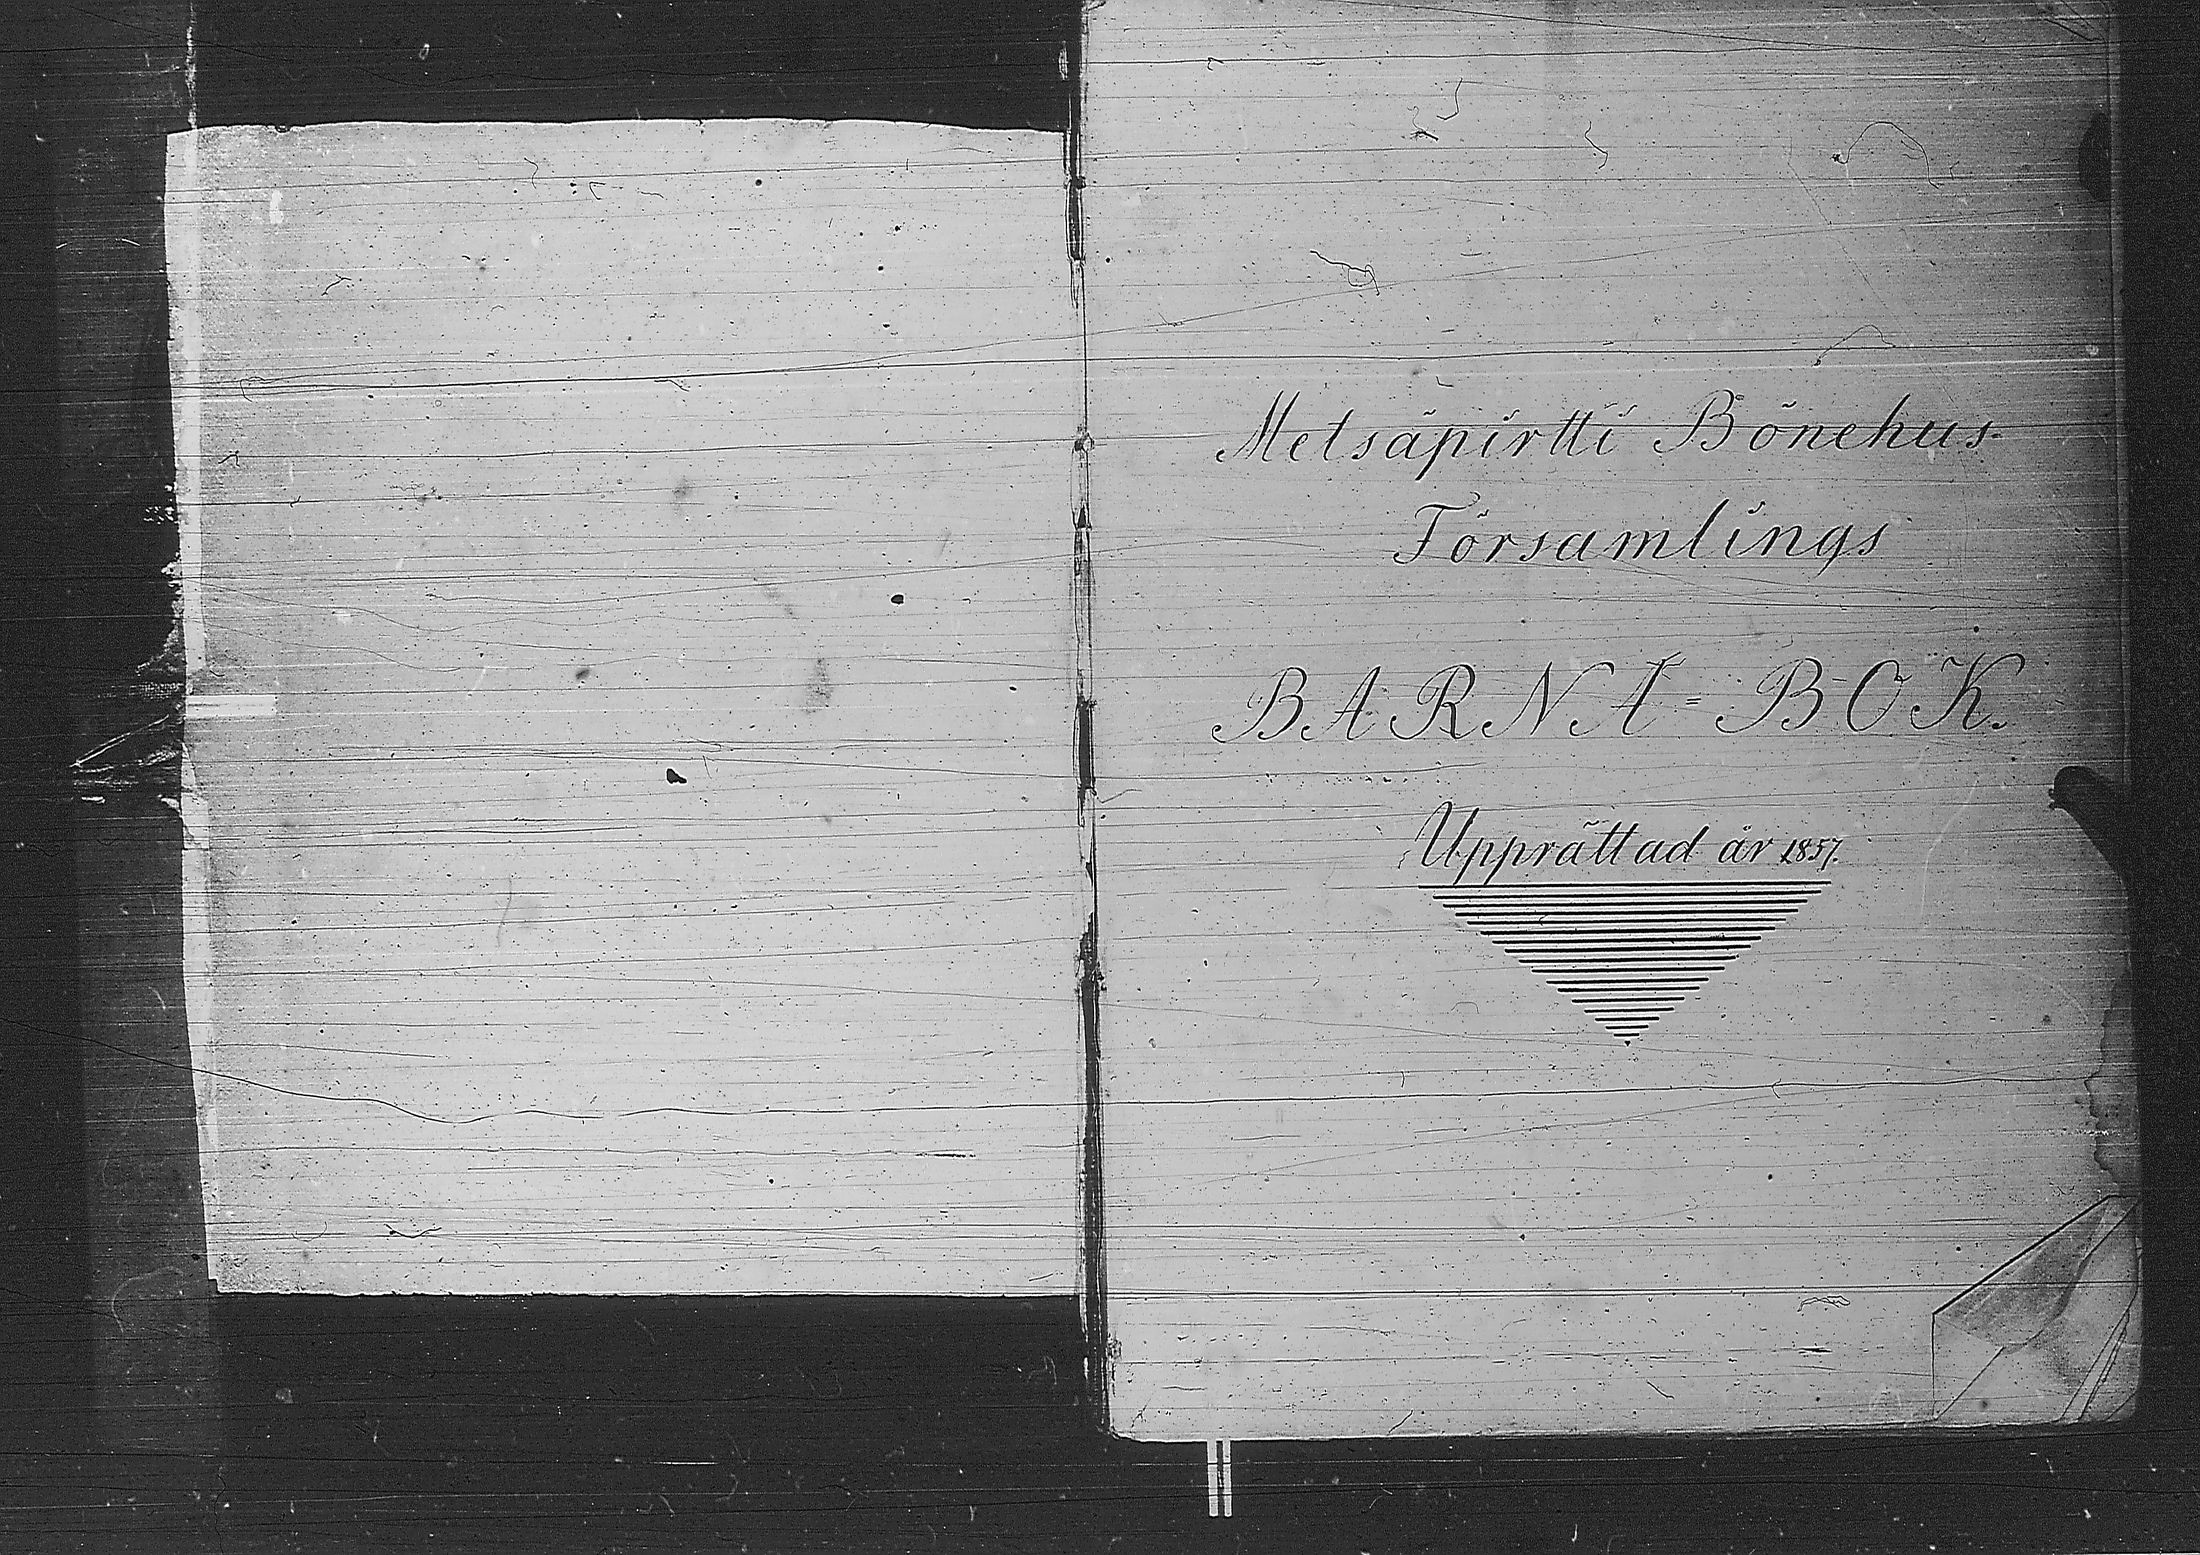 Metsäpirtti Bönehus-
Församlings
BARNA-BOK.
Upprättad år 1857.